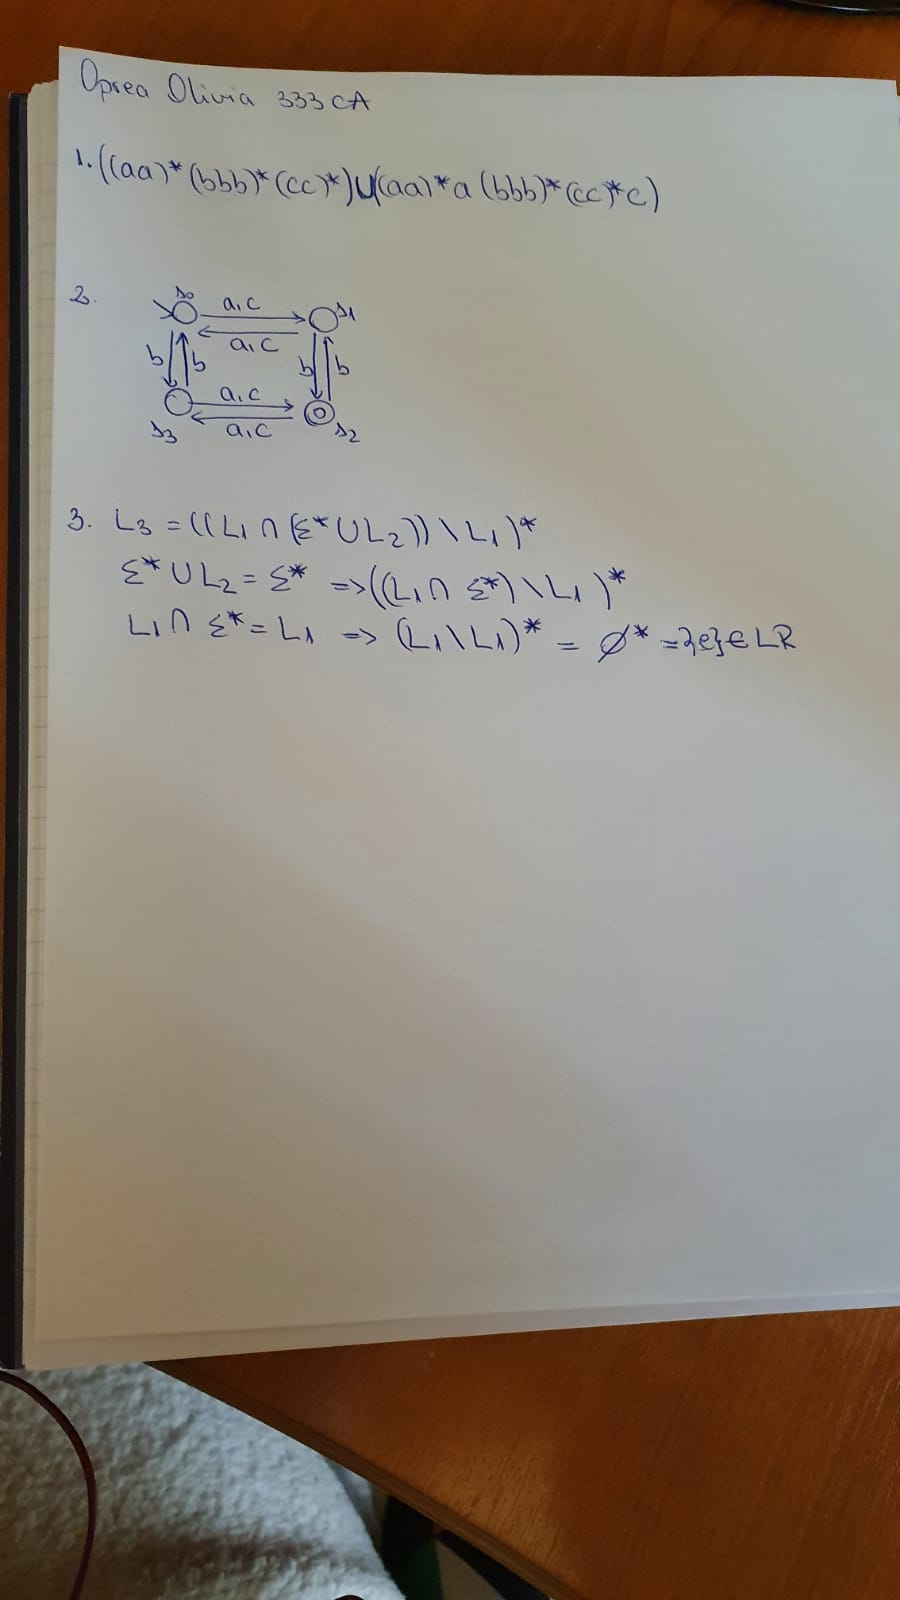 Oprea Olivia 333 CA
1. ((aa)*(bbb)*(cc)*)U((aa)*a (bbb)*(cc)*c)
2.
s0 a,c s1
a,c
b b b b
a,c
s3 a,c s2
3. L3 = ((L1 ∩ (Σ* U L2)) \ L1)*
Σ* U L2 = Σ* => ((L1 ∩ Σ*) \ L1)*
L1 ∩ Σ* = L1 => (L1 \ L1)* = ∅* = {e} ∈ LR